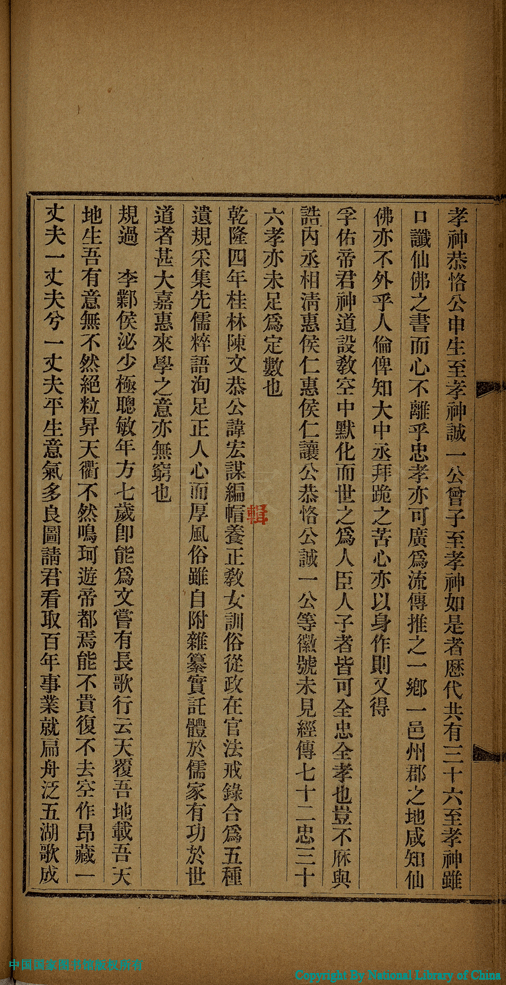 孝神恭恪公申生至孝神誠一公曾子至孝神如是者歷代共有三十六至孝神雖
口讖仙佛之書而心不離乎忠孝亦可廣爲流傳推之一鄉一邑州郡之地咸知仙
佛亦不外乎人倫俾知大中丞拜跪之苦心亦以身作則又得
孚佑帝君神道設敎空中默化而世之爲人臣人子者皆可全忠全孝也豈不庥與
誥內丞相淸惠侯仁惠侯仁讓公恭恪公誠一公等徽號未見經傳七十二忠三十
六孝亦未足爲定數也
乾隆四年桂林陳文恭公諱宏謀編帽養正敎女訓俗從政在官法戒錄合爲五種
輯
遺規采集先儒粹語洵足正人心而厚風俗雖自附雜纂實託體於儒家有功於世
道者甚大嘉惠來學之意亦無窮也
規過 李鄴侯泌少極聰敏年方七歲卽能爲文嘗有長歌行云天覆吾地載吾天
地生吾有意無不然絕粒昇天衢不然鳴珂遊帝都焉能不貴復不去空作昂藏一
丈夫一丈夫兮一丈夫平生意氣多良圖請君看取百年事業就扁舟泛五湖歌成
中国国家图书馆版权所有
Copyright By National Library of China